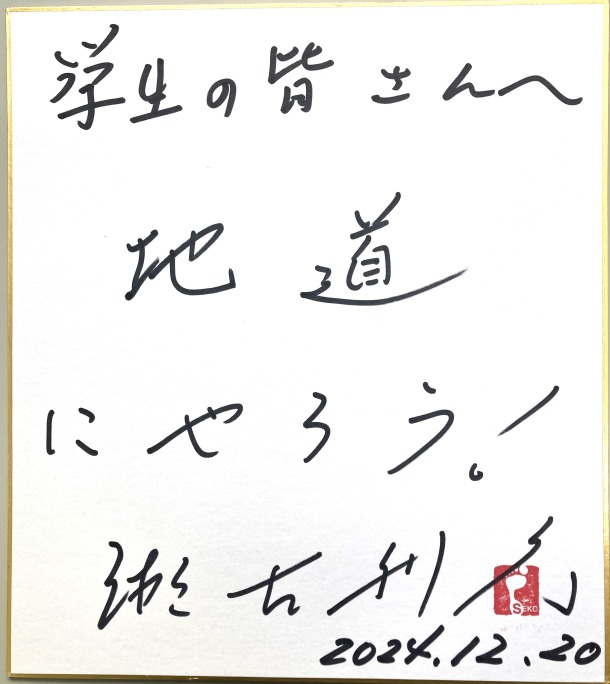 学生の皆さんへ
地道
にやろう!
瀬古利彦
SEKO
2024.12.20